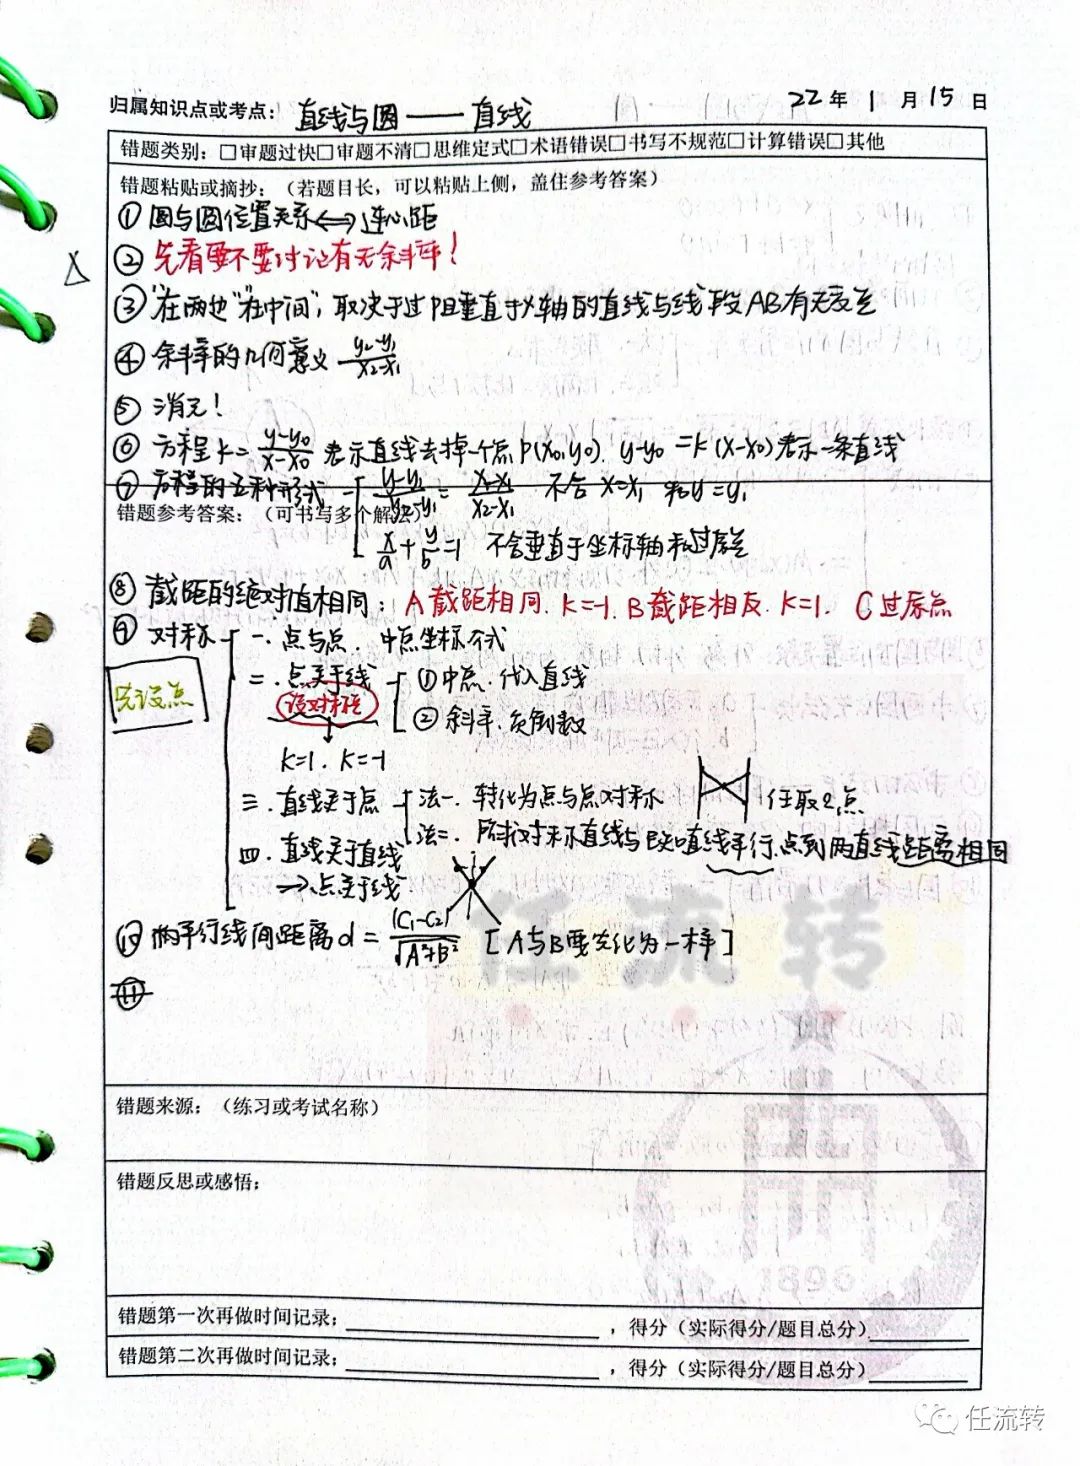 归属知识点或考点：直线与圆——直线 22年1月15日
错题类别：□审题过快□审题不清□思维定式□术语错误□书写不规范□计算错误□其他
错题粘贴或摘抄：（若题目长，可以粘贴上侧，盖住参考答案）
①圆与圆位置关系⟺连心距
△ ②先看要不要讨论有无斜率！
③"在两边""在中间"，取决于过P且垂直于x轴的直线与线段AB有无交点
④斜率的几何意义 (y₂-y₁)/(x₂-x₁)
⑤消元！
⑥方程k=(y-y₀)/(x-x₀)表示直线去掉一个点P(x₀,y₀). y-y₀=k(x-x₀)表示一条直线
⑦方程的五种形式 (y-y₁)/(y₂-y₁)=(x-x₁)/(x₂-x₁) 不含x=x₁和y=y₁
错题参考答案：（可书写多个解法）
x/a+y/b=1 不含垂直于坐标轴和过原点
⑧截距的绝对值相同：A截距相同.k=-1.B截距相反.k=1. C过原点
⑨对称 一.点与点.中点坐标公式
先设点
二.点关于线 ①中点.代入直线
设对称点 ②斜率.负倒数
k=1.k=-1
三.直线关于点 法一.转化为点与点对称 任取2点
法二.所求对称直线与已知直线平行.点到两直线距离相同
四.直线关于直线
⇒点关于线
⑩两平行线间距离d=|C₁-C₂|/√(A²+B²) [A与B要先化为一样]
⑪
任流转
1896
错题来源：（练习或考试名称）
错题反思或感悟：
错题第一次再做时间记录：，得分（实际得分/题目总分）
错题第二次再做时间记录：，得分（实际得分/题目总分）
任流转